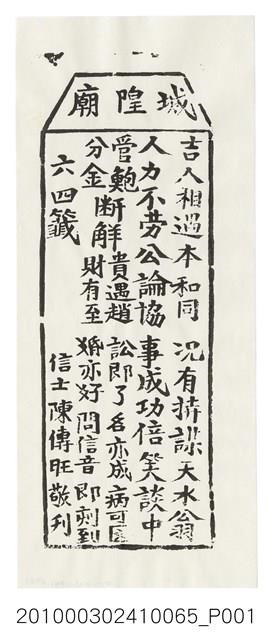 城隍廟
吉人相遇本和同 況有持謀天水翁
人力不勞公論協 事成功倍笑談中
訟即了 名亦成 病可
管鮑分金 斷解 貴遇趙 財有至
婚亦好 問信音 即刻到
六四籤
信士陳傳旺敬刋
201000302410065_P001